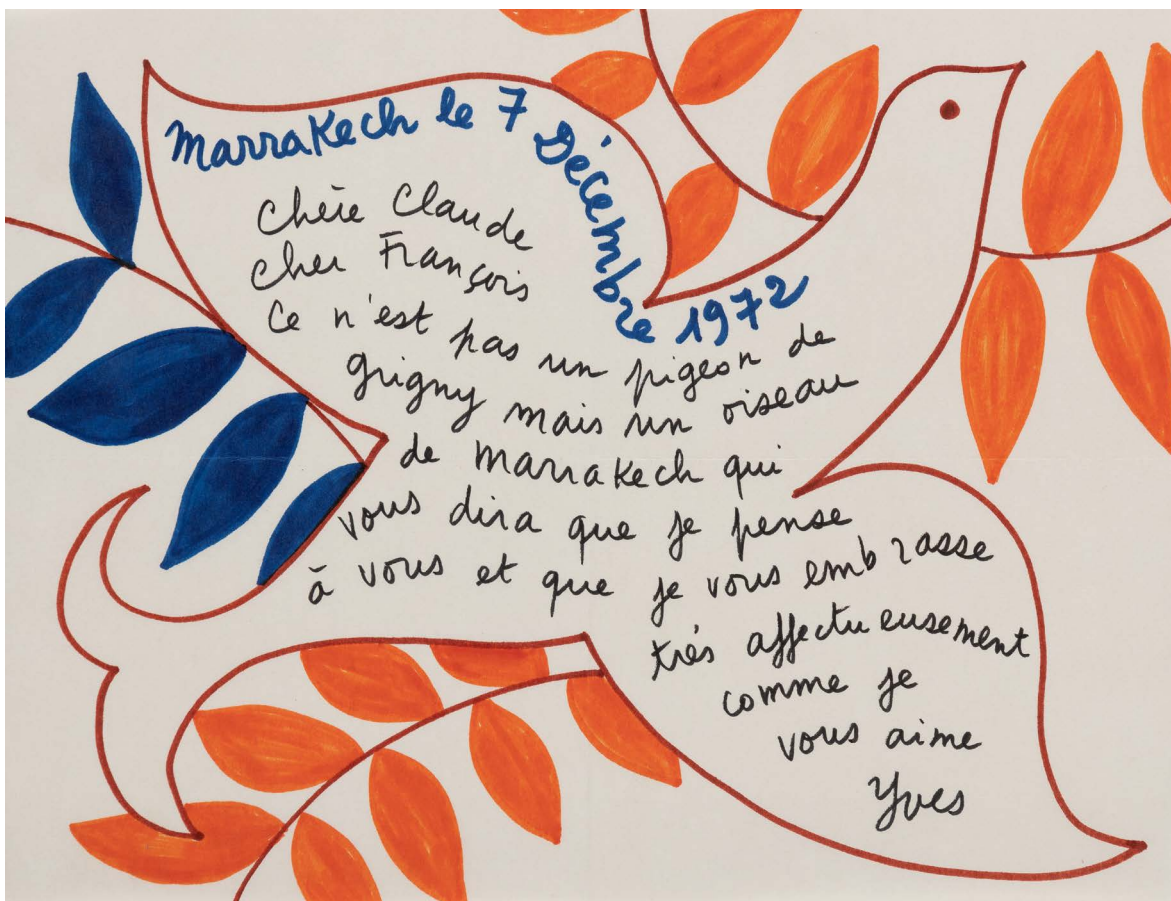 Marrakech le 7 Décembre 1972
Chère Claude
cher François
Ce n'est pas un pigeon de
grigny mais un oiseau
de marrakech qui
vous dira que je pense
à vous et que je vous embrasse
très affectueusement
comme je
vous aime
Yves